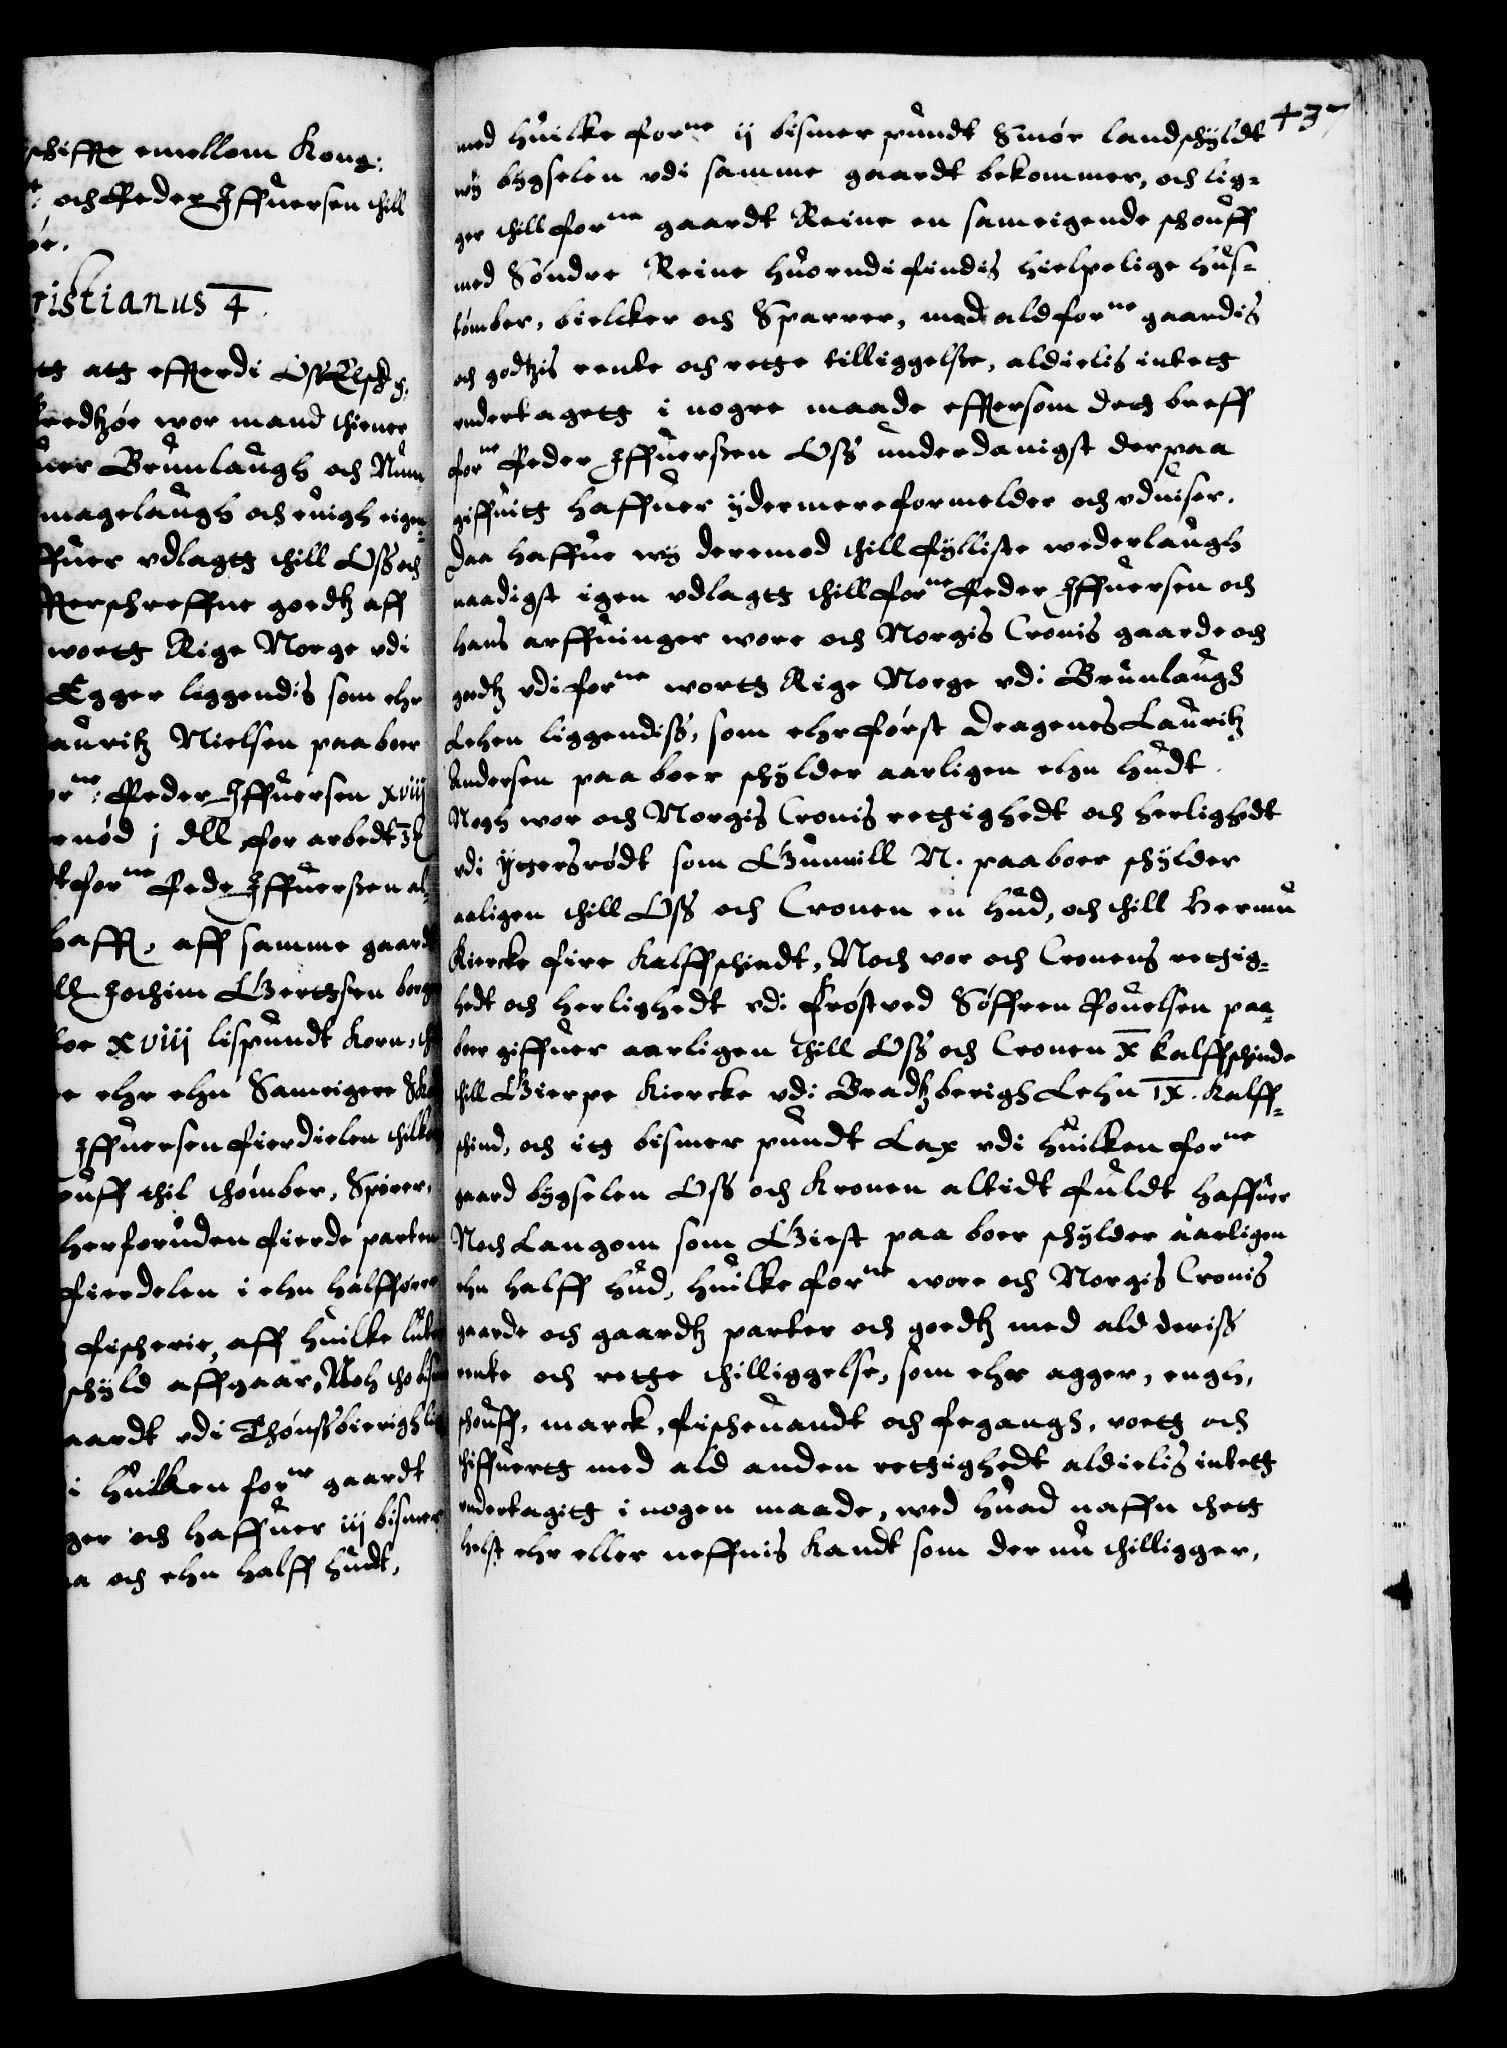 schiffte emellom Kong:
och Peder Iffuersen thill
ristianus 4.
tg atg effterdi Oss Elsch g:
wor mand thiener
uer Brunlaugh och Num
magelaugh och euigh eigen=
ffuer vdlagtg thill Oss och
fterschreffne goedtz aff
wortg Rige Norge vdi
Egger liggendis som ehr
auritz Nielsen paa boer
rne: Peder Iffuersen xviij
nød j dll for arbedt
forne Pede Iffuerssen al
haff, aff samme gaard
Jochim Gertssen borg
xviij lispundt Korn,
ehr ehn Sameigere
Iffuersen fierdielen
ouff thil thømber, Spirer,
herforuden fierde parten
fierdelen i ehn halff
fischerie, aff huilke
schyld affgaar, Noch tho
aardt vdi Thønssbierigh
i huilken forne gaardt
ger och haffuer iij bismer
a och ehn halff hudt,
437
med huilke forne ij bismer pundt Smør landschyldt
wy bygselen vdi samme gaardt bekommer, och lig=
ger thill forne gaardt Reine en sameigende schouff
med Søndre Reine huorudi findis hielpelige hus=
tømber, bielcker och Sparrer, med ald forne gaardis
och godtzis rente och rette tilliggelse, aldielis intetg
vndertagetg i nogre maade effttersom detg breff
forne Peder Iffuerssen Oss underdanigst derpaa
giffuitg haffuer ydermere formelder och vduiser.
Daa haffue wy deremod thill fylliste wederlaugh
naadigst igen vdlagtg thill forne Peder Iffuersen och
hans arffuinger wore och Norgis Cronis gaarde och
goedtz vdi forne wortg Rige Norge vdi Brunlaugh
Lehen liggendiss, som ehr først Deagenes Lauritz
Andersen paa boer schylder aarligen ehn hudt.
Nogh wor och Norgis Cronis rettighedt och herlighedt
vdi Yttersrødt som Gunnill N. paaboer schylder
aaligen thill Oss och Cronen en hud, och thill Bermu
Kiercke fire Kalffschindt, Noch vor och Cronens rettig=
hedt och herlighedt vdi Frøstued Søffren Pouelsen paa=
boer giffuer aarligen thill Oss och Cronen x kalffschinde
thill Gierpe Kiercke vdi Bradtzberigh Lehn ix. Kalff=
schind, och itg bismer pundt Lax vdi huilken forne
gaard bygselen Oss och Kronen altidt fuldt haffuer
Noch Langom som Giest paa boer schylder aarligen
ehn halff hud, huilke forne wore och Norgis Cronis
gaarde och gaardtz parter och goedtz med ald deriss
rente och rette thilliggelse, som ehr agger, engh,
schouff, marck, fischeuandt och fegangh, voetg och
thiffuertg med ald anden rettighedt aldielis intetg
vndertagitg i nogen maade, wed huad naffn thetg
helst ehr eller neffnis Kandt som der nu thilligger,